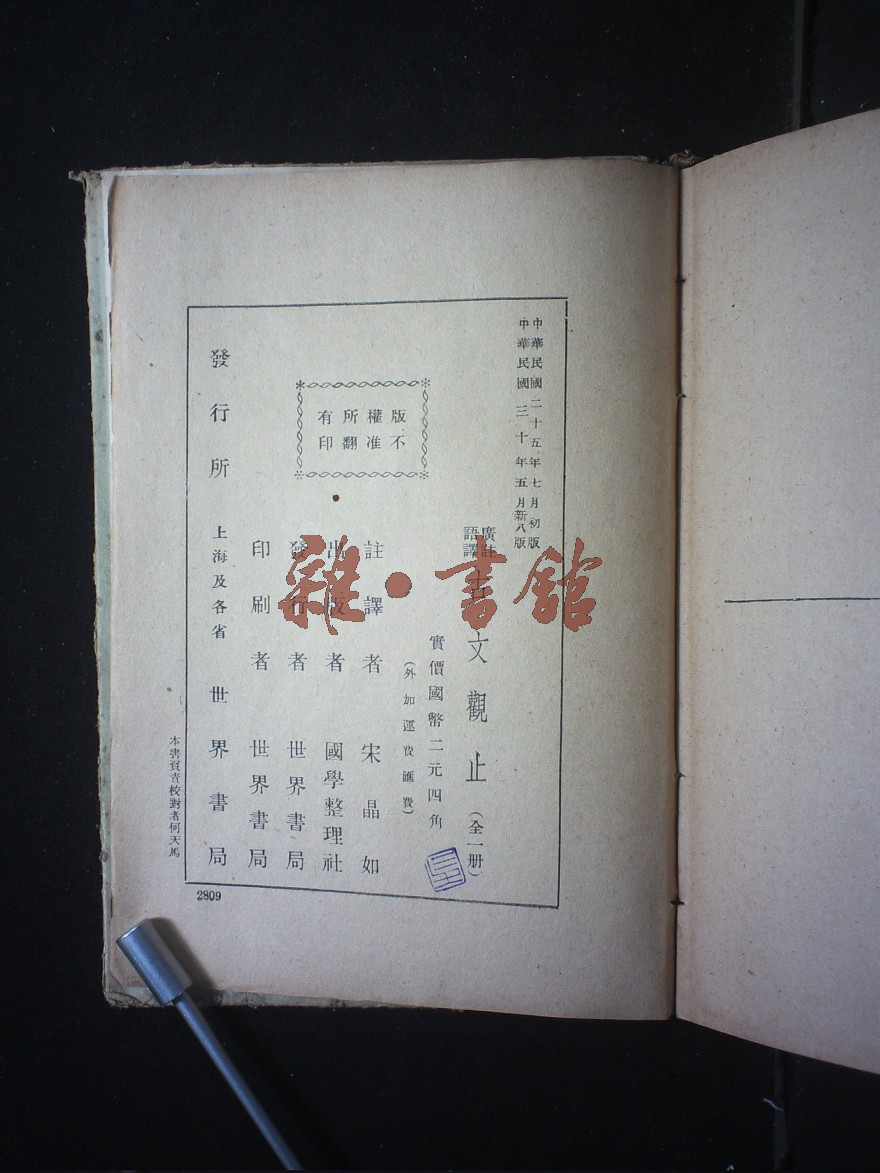 中華民國二十五年七月初版
中華民國三十年五月新八版
廣註
語譯
古文觀止（全一册）
實價國幣二元四角
（外加運費匯費）
版權所有
不准翻印
註譯者 宋晶如
出版者 國學整理社
發行者 世界書局
印刷者 世界書局
發行所 上海及各省 世界書局
本書負責校對者何天馬
2809
雜·書館